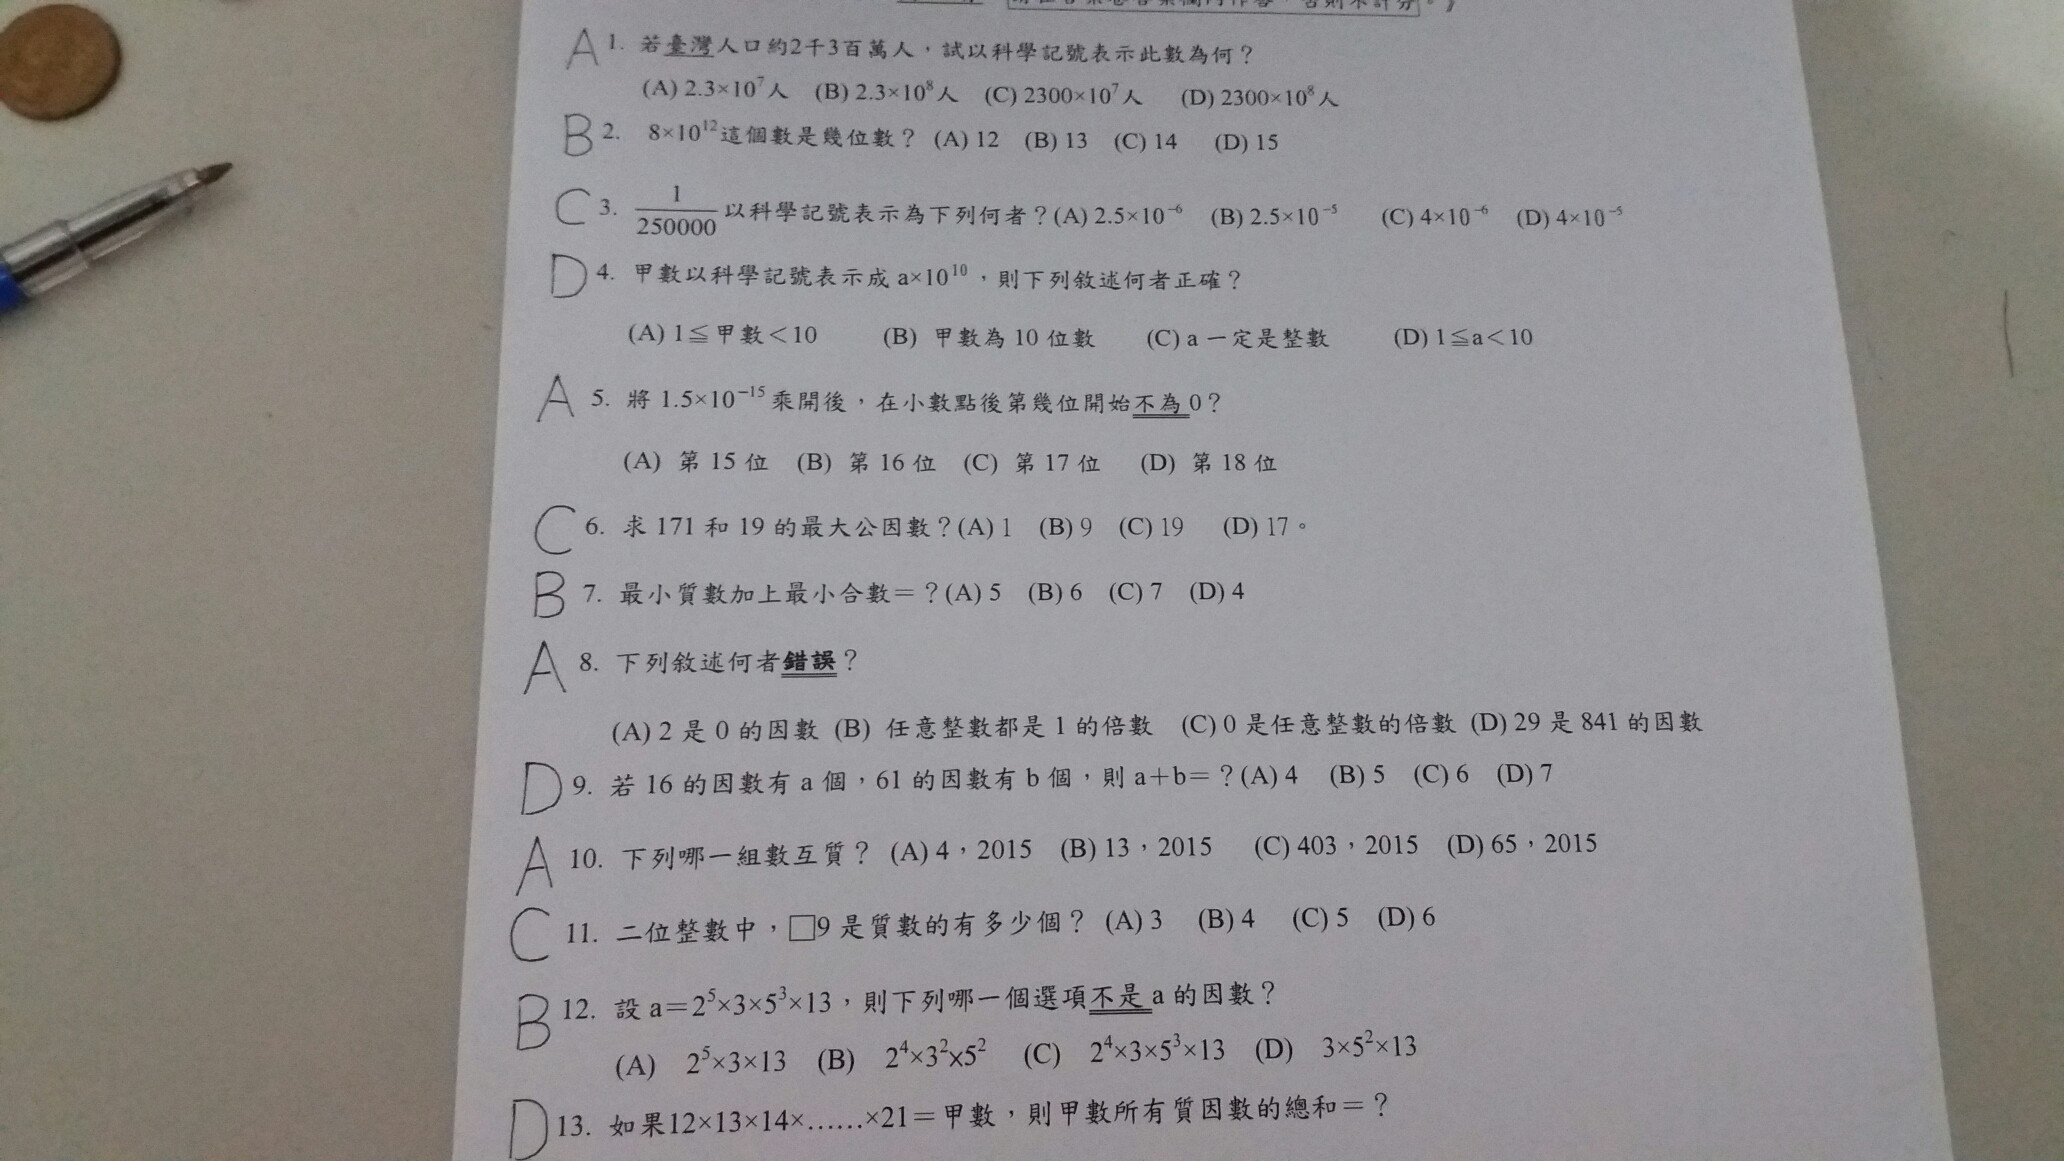 A 1. 若臺灣人口約2千3百萬人，試以科學記號表示此數為何？
(A) 2.3×10⁷人 (B) 2.3×10⁸人 (C) 2300×10⁷人 (D) 2300×10⁸人
B 2. 8×10¹²這個數是幾位數？ (A) 12 (B) 13 (C) 14 (D) 15
C 3. 1/250000 以科學記號表示為下列何者？(A) 2.5×10⁻⁶ (B) 2.5×10⁻⁵ (C) 4×10⁻⁶ (D) 4×10⁻⁵
D 4. 甲數以科學記號表示成 a×10¹⁰，則下列敘述何者正確？
(A) 1≦甲數＜10 (B) 甲數為 10 位數 (C) a 一定是整數 (D) 1≦a＜10
A 5. 將 1.5×10⁻¹⁵乘開後，在小數點後第幾位開始不為0？
(A) 第 15 位 (B) 第 16 位 (C) 第 17 位 (D) 第 18 位
C 6. 求 171 和 19 的最大公因數？(A) 1 (B) 9 (C) 19 (D) 17。
B 7. 最小質數加上最小合數＝？(A) 5 (B) 6 (C) 7 (D) 4
A 8. 下列敘述何者錯誤？
(A) 2 是 0 的因數 (B) 任意整數都是 1 的倍數 (C) 0 是任意整數的倍數 (D) 29 是 841 的因數
D 9. 若 16 的因數有 a 個，61 的因數有 b 個，則 a＋b＝？(A) 4 (B) 5 (C) 6 (D) 7
A 10. 下列哪一組數互質？ (A) 4，2015 (B) 13，2015 (C) 403，2015 (D) 65，2015
C 11. 二位整數中，□9 是質數的有多少個？ (A) 3 (B) 4 (C) 5 (D) 6
B 12. 設 a＝2⁵×3×5³×13，則下列哪一個選項不是 a 的因數？
(A) 2⁵×3×13 (B) 2⁴×3²×5² (C) 2⁴×3×5³×13 (D) 3×5²×13
D 13. 如果12×13×14×……×21＝甲數，則甲數所有質因數的總和＝？